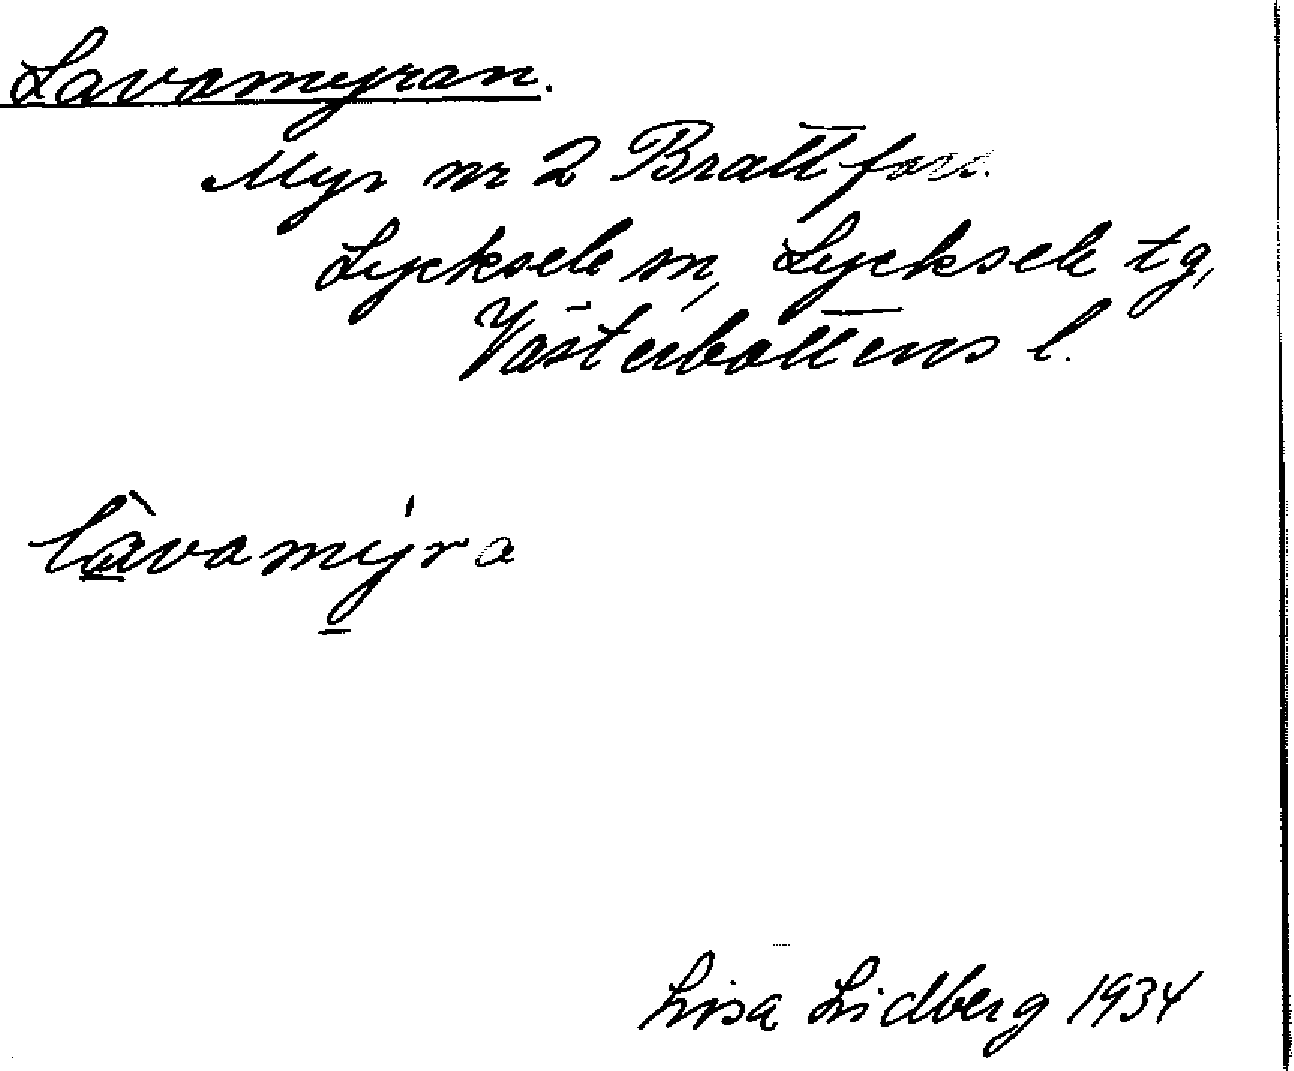 Lavamyran.
Myr nr 2 Brattfors
Lycksele sn, Lycksele tg,
Västerbottens l.
làvamýra
Lisa Lidberg 1934